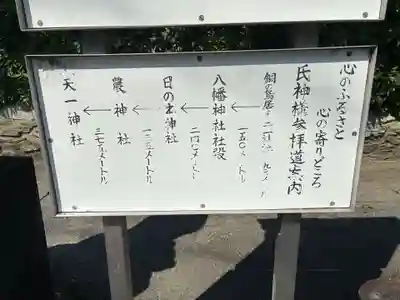 心のふるさと
心の寄りどころ
氏神様参拝道案内
銅鳥居
←
一五〇メートル
八幡神社社殿
←
二四〇メートル
日の土神社
←
一二三メートル
農神社
←
三七五メートル
天一神社